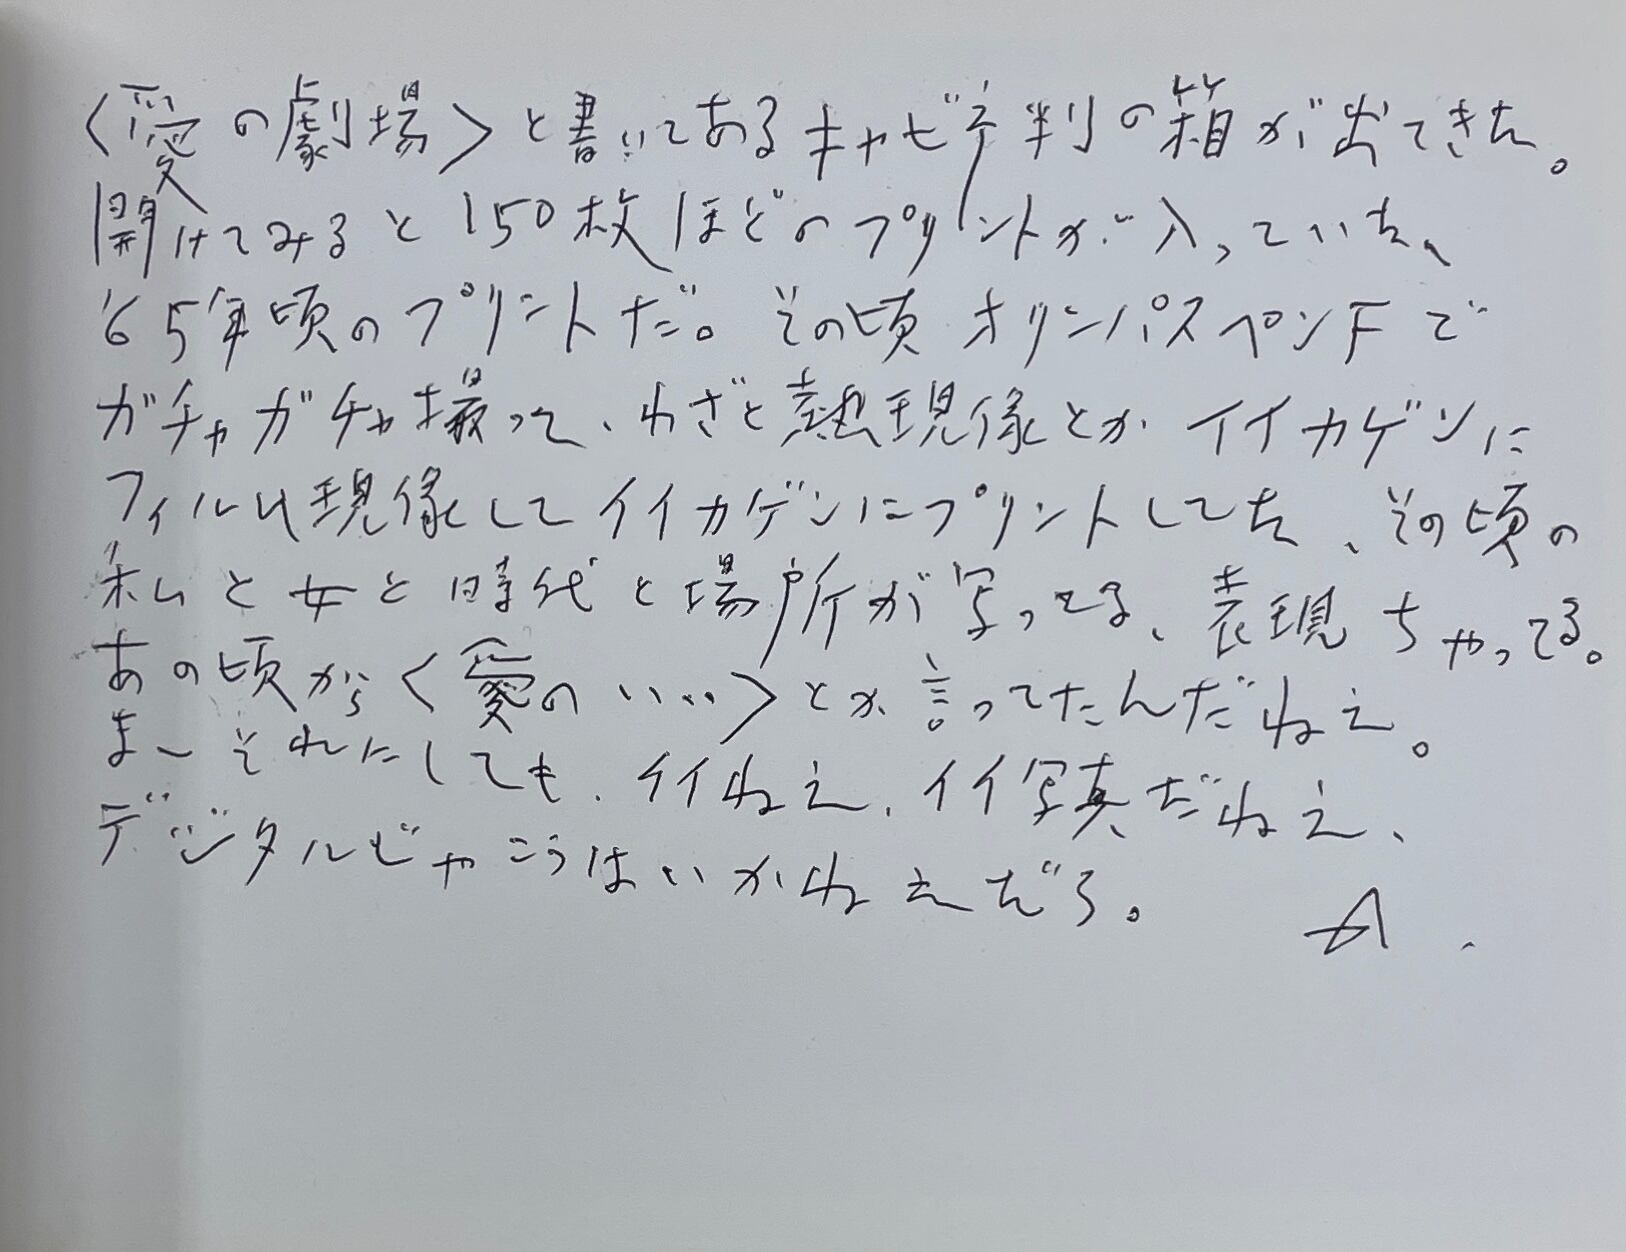 〈愛の劇場〉と書いてあるキャビネ判の箱が出てきた。
開けてみると150枚ほどのプリントが入っていた、
'65年頃のプリントだ。その頃オリンパスペンFで
ガチャガチャ撮って、わざと熱現像とかイイカゲンに
フィルム現像してイイカゲンにプリントしてた、その頃の
私と女と時代と場所が写ってる、表現ちゃってる。
あの頃から〈愛の‥‥〉とか言ってたんだねェ。
まーそれにしても、イイねェ、イイ写真だねェ、
デジタルじゃこうはいかねェだろ。
A.